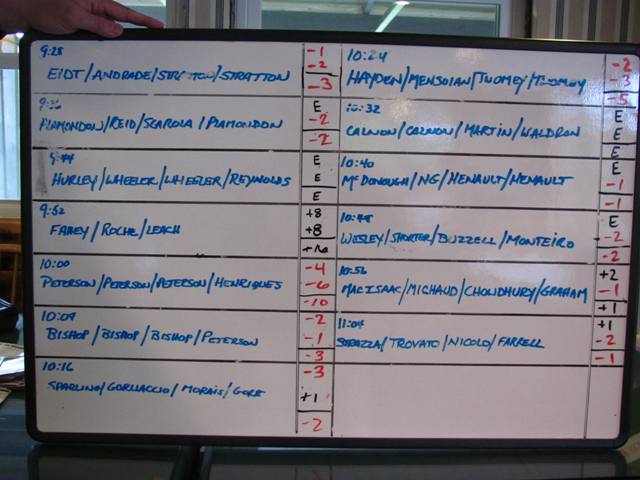 9:28
-1
-2
EIDT/ANDRADE/STRATTON
-3
E
PLAMONDON/REID/SCAROLA/PLAMONDON
-2
-2
9:44
E
HURLEY/WHEELER/WHEELER/REYNOLDS
E
E
9:52
+8
FAHEY/ROCHE/LEACH
+8
+16
10:00
-4
PETERSON/PETERSON/PETERSON/HENRIQUES
-6
-10
10:09
-2
BISHOP/BISHOP/BISHOP/PETERSON
-1
-3
10:16
-3
SPARLING/GORLIACCIO/MORAIS/GORE
+1
-2
10:24
-2
HAYDEN/MENSOIAN/TUOMEY/TUOMEY
-3
-5
10:32
E
CALNON/CALNON/MARTIN/WALDRON
E
E
10:40
E
McDONOUGH/NG/HENAULT/HENAULT
-1
-1
10:48
E
WESLEY/SHORTER/BUZZELL/MONTEIRO
-2
-2
10:56
+2
MACISAAC/MICHAUD/CHOWDHURY/GRAHAM
-1
+1
11:04
+1
TROVATO/NICOLO/FARRELL
-2
-1